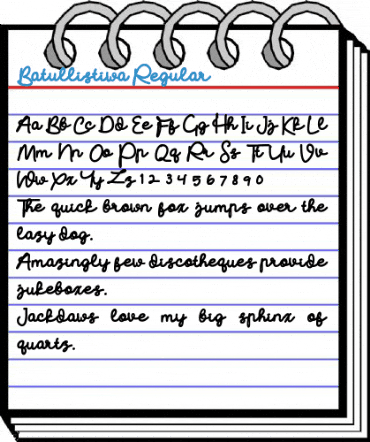 Batullistiwa Regular
Aa Bb Cc Dd Ee Ff Gg Hh Ii Jj Kk Ll
Mm Nn Oo Pp Qq Rr Ss Tt Uu Vv
Ww Xx Yy Zz 1 2 3 4 5 6 7 8 9 0
The quick brown fox jumps over the
lazy dog.
Amazingly few discotheques provide
jukeboxes.
Jackdaws love my big sphinx of
quartz.